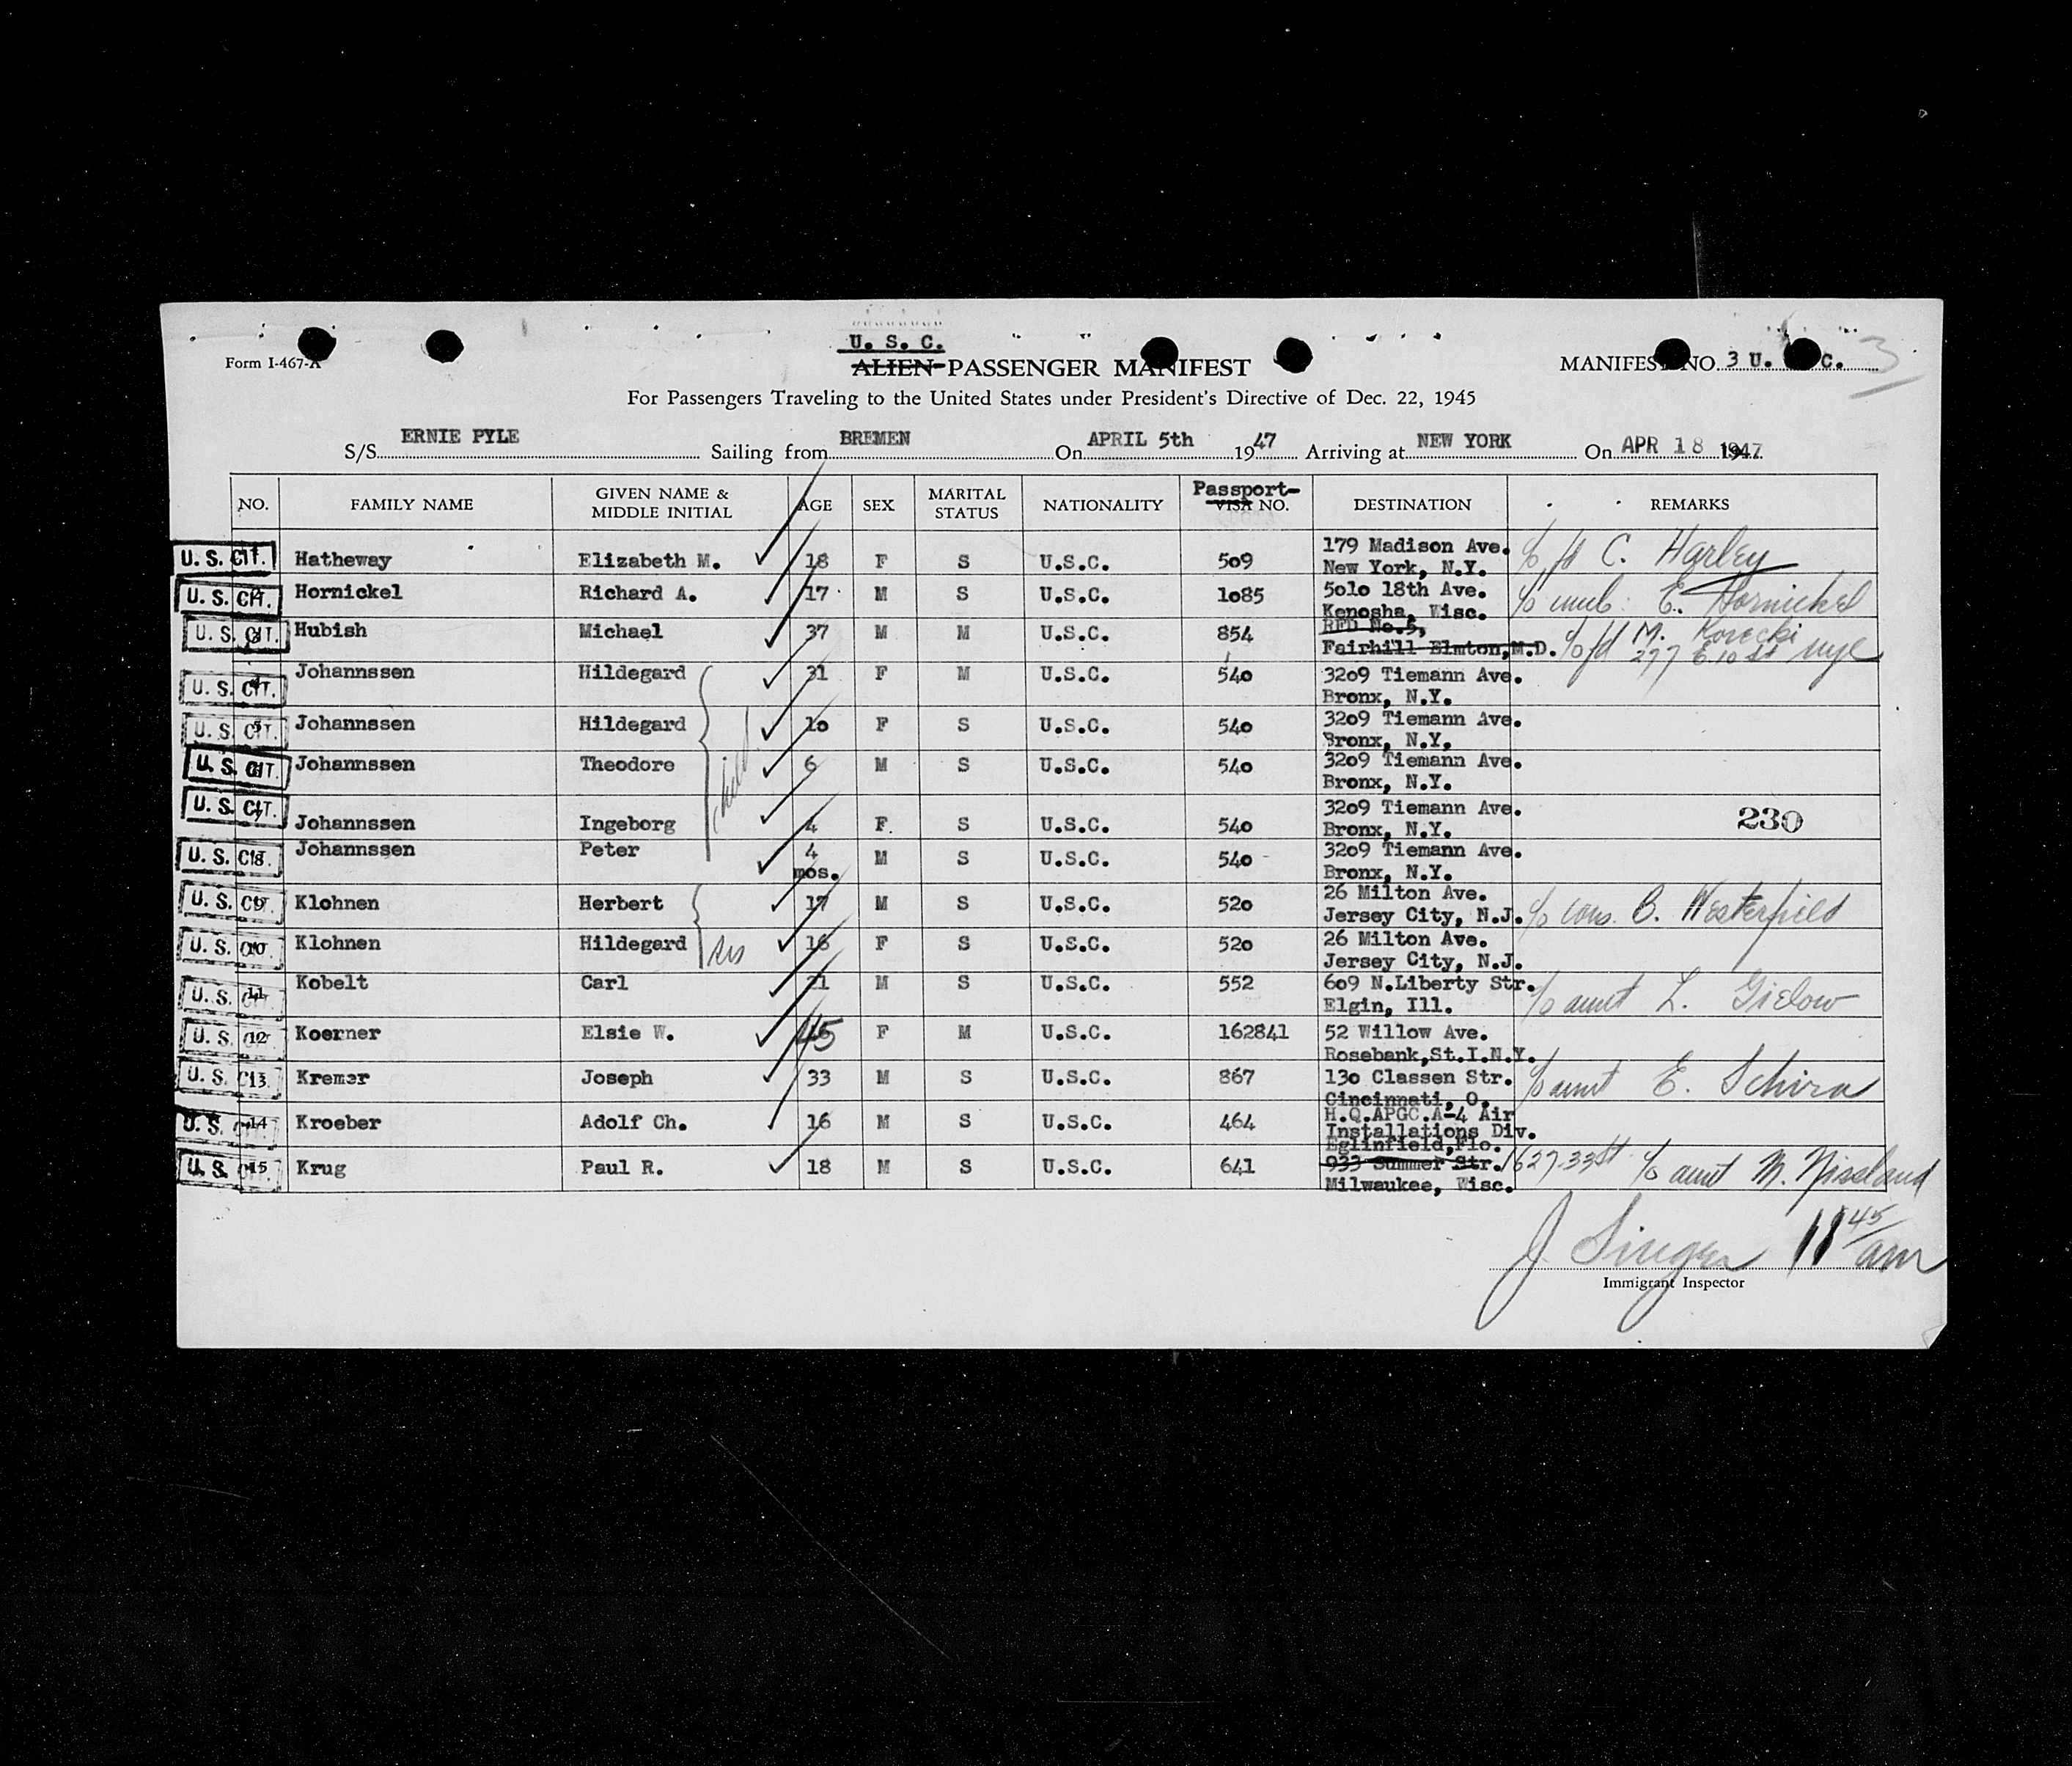 U. S. C.
Form I-467-A
ALIEN PASSENGER MANIFEST
MANIFEST NO. 3 U. C. 3
For Passengers Traveling to the United States under President's Directive of Dec. 22, 1945
S/S ERNIE PYLE Sailing from BREMEN On APRIL 5th 1947 Arriving at NEW YORK On APR 18 1947
NO. FAMILY NAME GIVEN NAME & MIDDLE INITIAL AGE SEX MARITAL STATUS NATIONALITY Passport- VISA NO. DESTINATION REMARKS
U. S. CIT. Hatheway Elizabeth M. 18 F S U.S.C. 509 179 Madison Ave. New York, N.Y. c/o fd C. Harley
U. S. CIT. 2 Hornickel Richard A. 17 M S U.S.C. 1085 5010 18th Ave. Kenosha, Wisc. c/o uncle: E. Hornickel
U. S. CIT. 3 Hubish Michael 37 M M U.S.C. 854 RFD No.5, Fairhill Elmton, M.D. c/o fd M. Korecki 277 E 10 St nyc
U. S. CIT. 4 Johannssen Hildegard 31 F M U.S.C. 540 3209 Tiemann Ave. Bronx, N.Y.
U. S. CIT. 5 Johannssen Hildegard 10 F S U.S.C. 540 3209 Tiemann Ave. Bronx, N.Y.
U. S. CIT. 6 Johannssen Theodore 6 M S U.S.C. 540 3209 Tiemann Ave. Bronx, N.Y.
U. S. CIT. 7 Johannssen Ingeborg 4 F. S U.S.C. 540 3209 Tiemann Ave. Bronx, N.Y. 230
U. S. CIT. 8 Johannssen Peter 4 mos. M S U.S.C. 540 3209 Tiemann Ave. Bronx, N.Y.
U. S. CIT. 9 Klohnen Herbert 17 M S U.S.C. 520 26 Milton Ave. Jersey City, N.J. c/o cous. B. Westerfield
U. S. CIT. 10 Klohnen Hildegard sis 16 F S U.S.C. 520 26 Milton Ave. Jersey City, N.J.
U. S. CIT. 11 Kobelt Carl 21 M S U.S.C. 552 609 N.Liberty Str. Elgin, Ill. c/o aunt L. Gielow
U. S. CIT. 12 Koerner Elsie W. 45 F M U.S.C. 162841 52 Willow Ave. Rosebank,St.I.N.Y.
U. S. CIT. 13 Kremer Joseph 33 M S U.S.C. 867 130 Classen Str. Cincinnati, O. c/o aunt E. Schira
U. S. CIT. 14 Kroeber Adolf Ch. 16 M S U.S.C. 464 H.Q.APGC.A-4 Air Installations Div. Eglinfield,Flo.
U. S. CIT. 15 Krug Paul R. 18 M S U.S.C. 641 933 Summer Str. Milwaukee, Wisc. 1627-33 St c/o aunt M. Nissland
J Singer 11 45/am
Immigrant Inspector